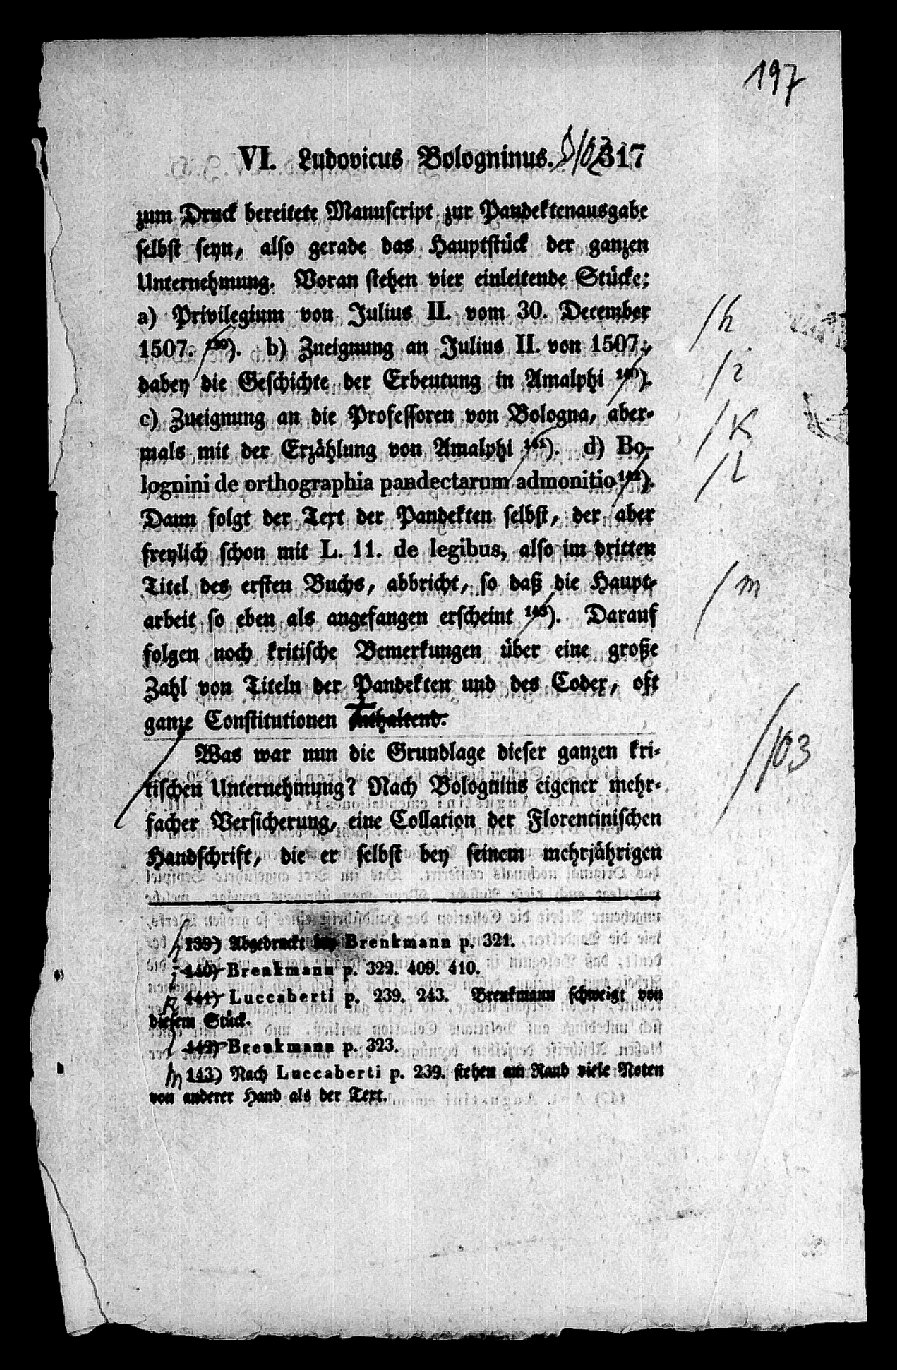 197
VI. Ludovicus Bologninus. 317
zum Druck bereitete Manuscript zur Pandektenausgabe
selbst seyn, also gerade das Hauptstück der ganzen
Unternehmung. Voran stehen vier einleitende Stücke:
a) Privilegium von Julius II. vom 30. December
1507. 139). b) Zueignung an Julius II. von 1507.,
dabey die Geschichte der Erbeutung in Amalphi 140).
c) Zueignung an die Professoren von Bologna, aber-
mals mit der Erzählung von Amalphi 141). d) Bo-
lognini de orthographia pandectarum admonitio 142).
Dann folgt der Text der Pandekten selbst, der aber
freylich schon mit L. 11. de legibus, also im dritten
Titel des ersten Buchs, abbricht, so daß die Haupt-
arbeit so eben als angefangen erscheint 143). Darauf
folgen noch kritische Bemerkungen über eine große
Zahl von Titeln der Pandekten und des Codex, oft
ganze Constitutionen enthaltend.
Was war nun die Grundlage dieser ganzen kri-
tischen Unternehmung? Nach Bolognins eigener mehr-
facher Versicherung, eine Collation der Florentinischen
Handschrift, die er selbst bey seinem mehrjährigen
139) Abgedruckt bey Brenkmann p. 321.
140) Brenkmann p. 322. 409. 410.
141) Luccaberti p. 239. 243. Brenkmann schweigt von
diesem Stück.
142) Brenkmann p. 323.
143) Nach Luccaberti p. 239. stehen am Rand viele Noten
von anderer Hand als der Text.
h
i
K
l
m
103